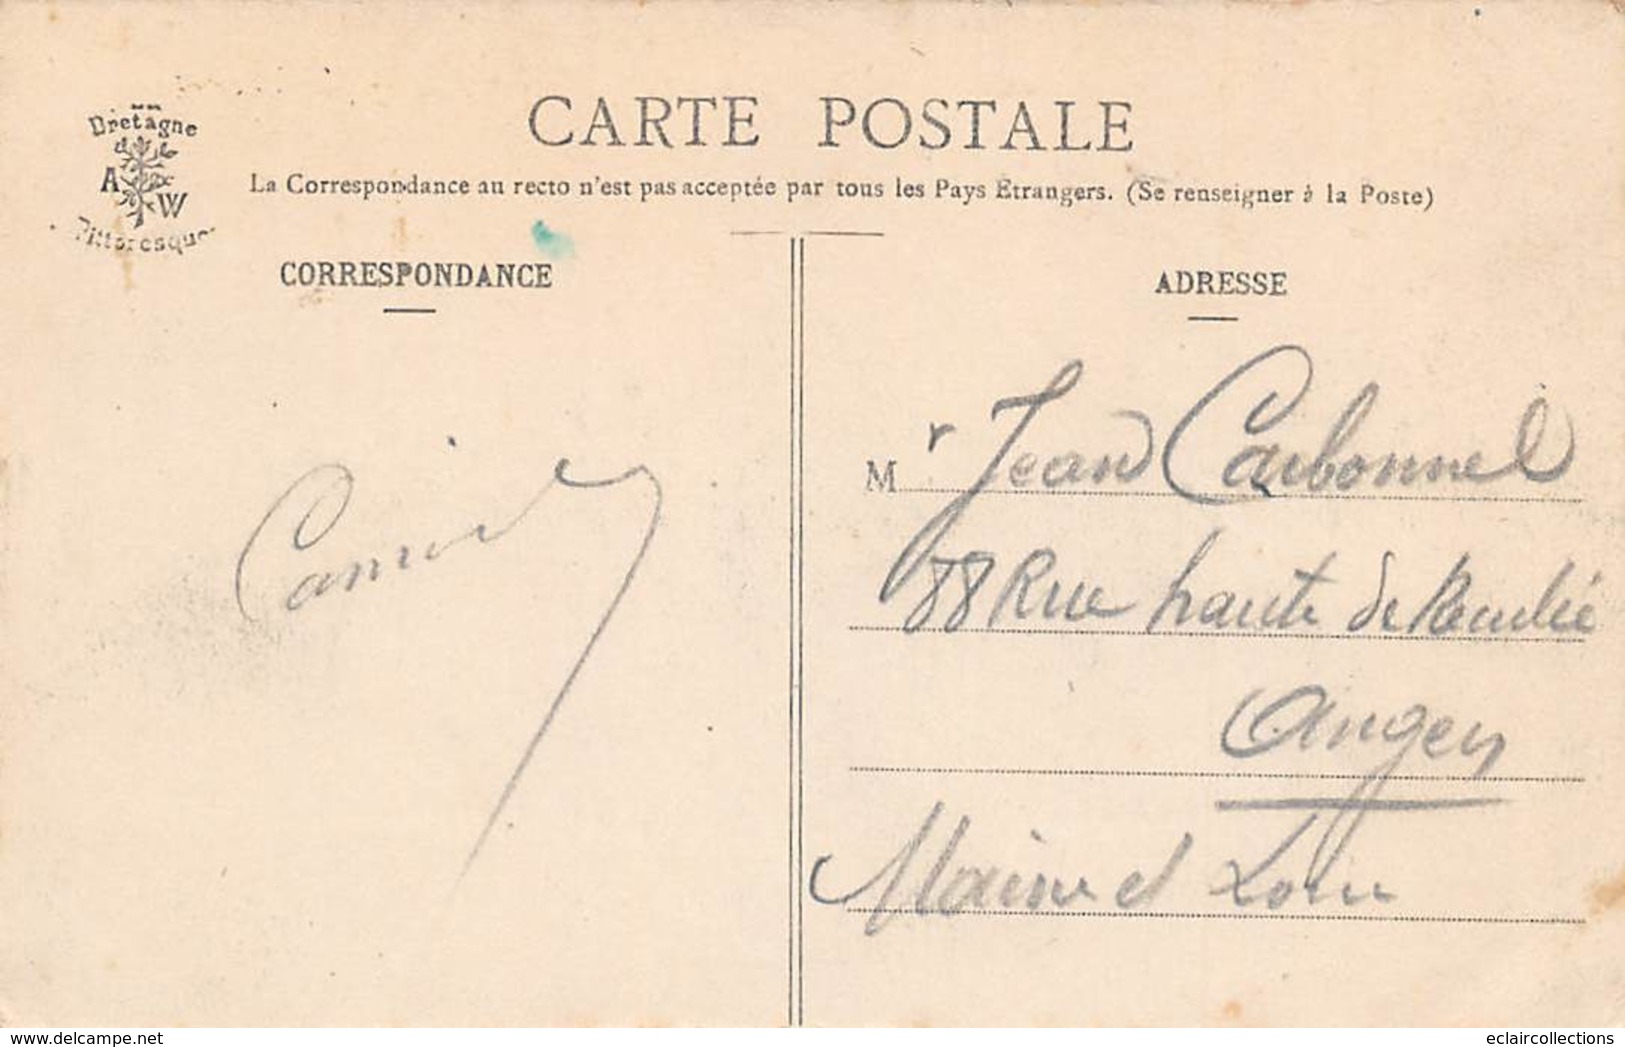 Bretagne
A W
Pittoresque
CARTE POSTALE
La Correspondance au recto n'est pas acceptée par tous les Pays Etrangers. (Se renseigner à la Poste)
CORRESPONDANCE
ADRESSE
Mr Jean Carbonnel
88 Rue haute de
Angers
Maine et Loire
delcampe.net
eclaircollections